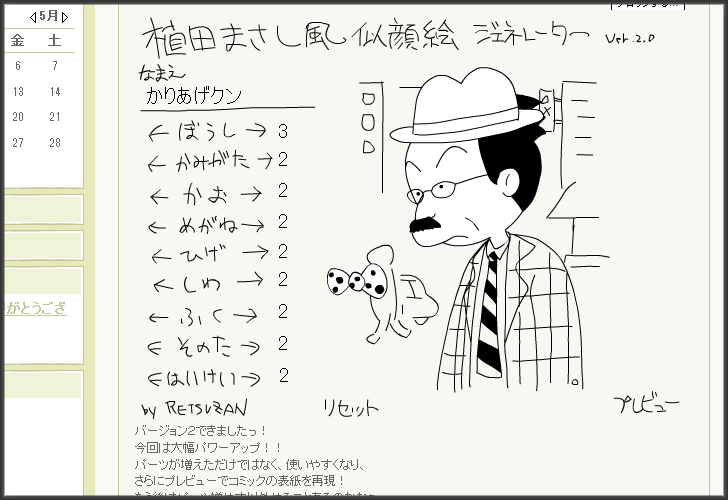 5月
金 土
6 7
13 14
20 21
27 28
がとうござ
植田まさし風似顔絵 ジェネレーター Ver.2.0
なまえ
かりあげクン
← ぼうし → 3
← かみがた → 2
← かお → 2
← めがね → 2
← ひげ → 2
← しわ → 2
← ふく → 2
← そのた → 2
← はいけい → 2
by RETSUZAN
リセット
プレビュー
バージョン2できましたっ！
今回は大幅パワーアップ！！
パーツが増えただけではなく、使いやすくなり、
さらにプレビューでコミックの表紙を再現！